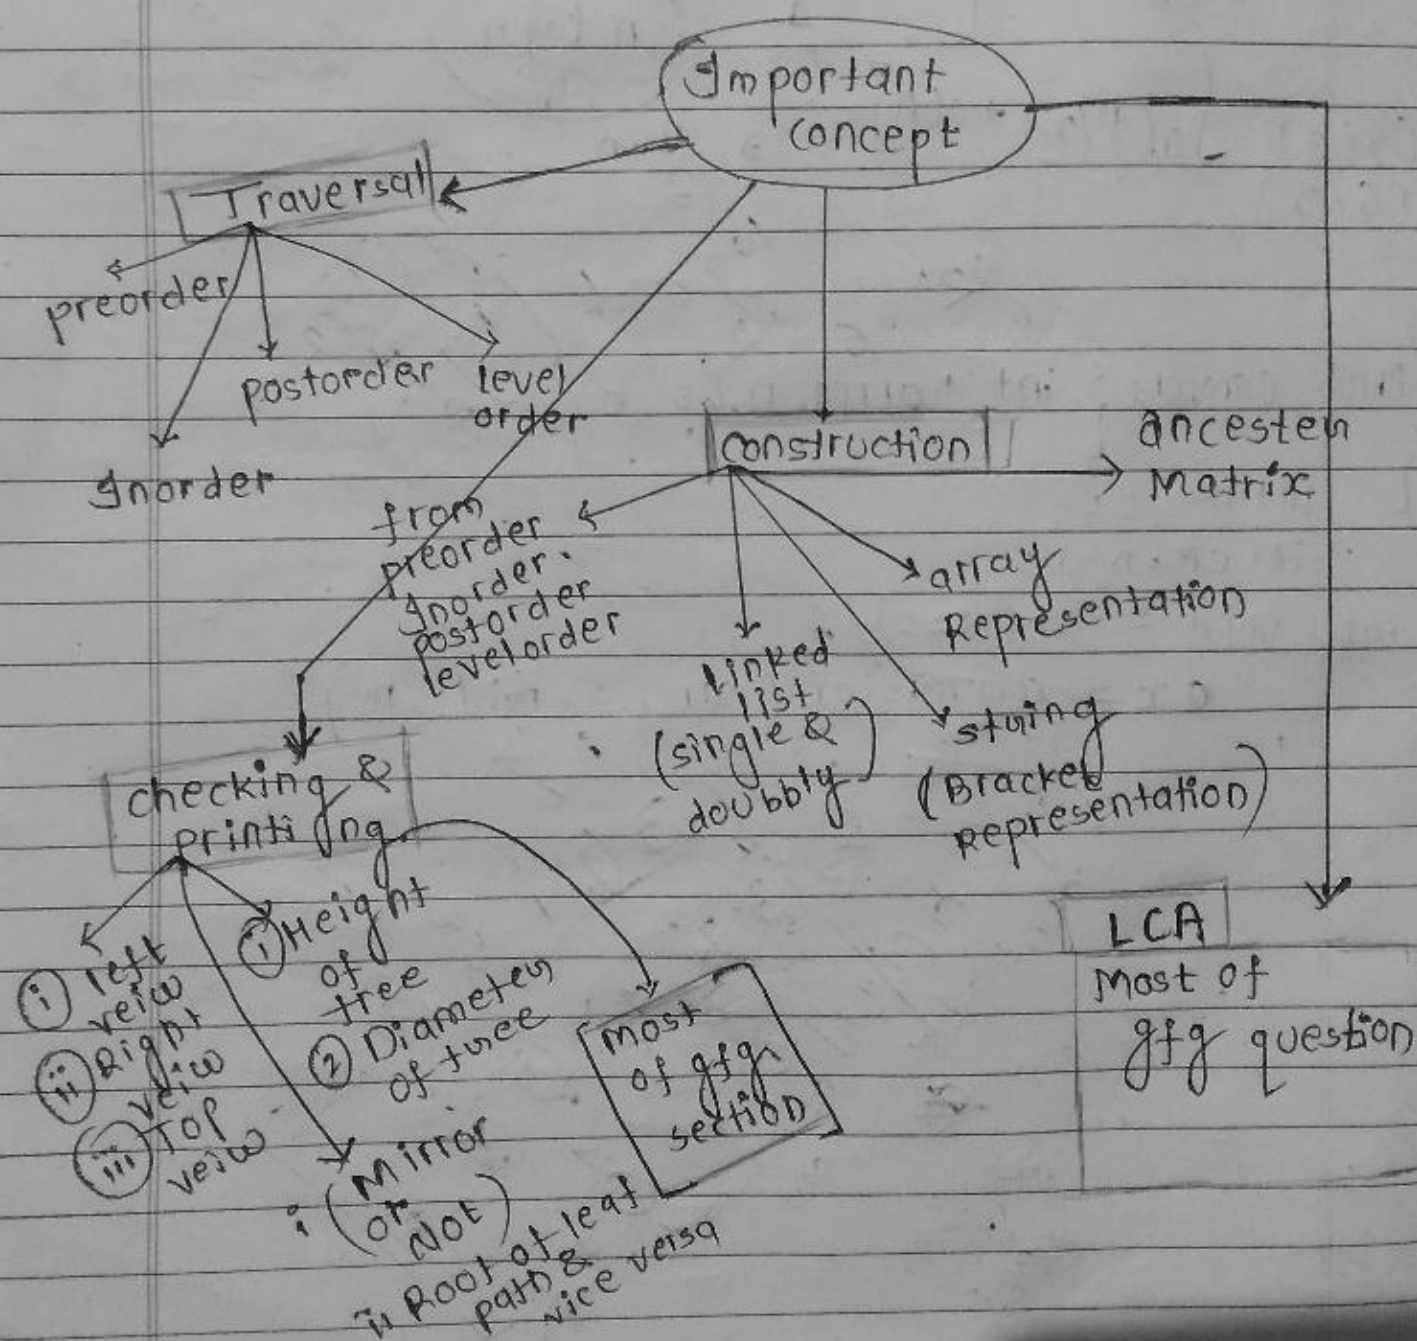 Important
concept
Traversal
preorder
postorder
level
order
Inorder
construction
ancester
Matrix
from
preorder
Inorder.
postorder
levelorder
array
Representation
Linked
list
(single &
doubbly)
string
(Bracket
representation)
checking &
printing
i left
veiw
ii Right
veiw
iii Top
veiw
1 Height
of
tree
2 Diameter
of tree
i (Mirror
or
Not)
ii Root of leaf
path &
vice versa
most
of gfg
section
LCA
Most of
gfg question